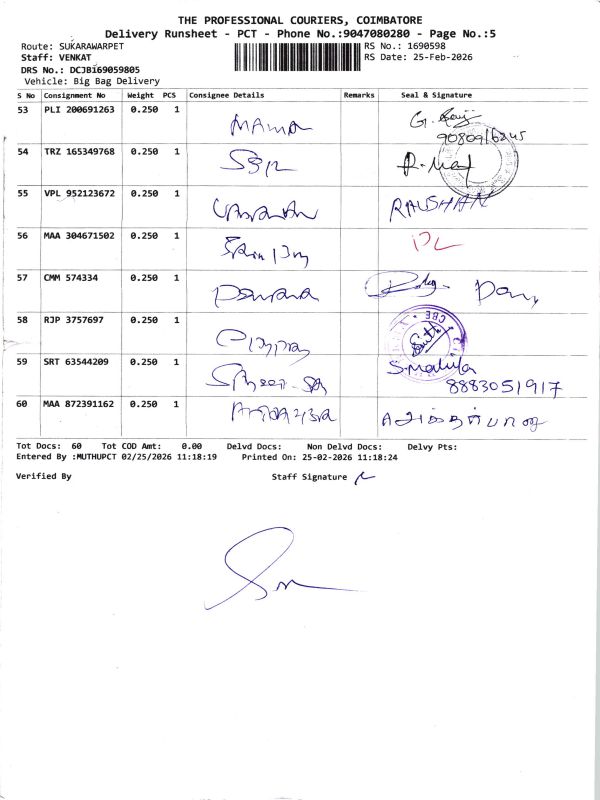 THE PROFESSIONAL COURIERS, COIMBATORE
Delivery Runsheet - PCT - Phone No.:9047080280 - Page No.:5
Route: SUKARAWARPET RS No.: 1690598
Staff: VENKAT RS Date: 25-Feb-2026
DRS No.: DCJB169059805
Vehicle: Big Bag Delivery
S No Consignment No Weight PCS Consignee Details Remarks Seal & Signature
53 PLI 200691263 0.250 1
9080916245
54 TRZ 165349768 0.250 1
55 VPL 952123672 0.250 1 RAUSHAN
56 MAA 304671502 0.250 1
57 CMM 574334 0.250 1
58 RJP 3757697 0.250 1
CBE
59 SRT 63544209 0.250 1
8883051917
60 MAA 872391162 0.250 1
Tot Docs: 60 Tot COD Amt: 0.00 Delvd Docs: Non Delvd Docs: Delvy Pts:
Entered By :MUTHUPCT 02/25/2026 11:18:19 Printed On: 25-02-2026 11:18:24
Verified By Staff Signature